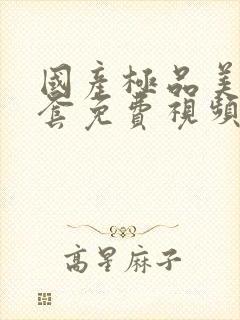 國產極品美
套免費視頻
高星麻子